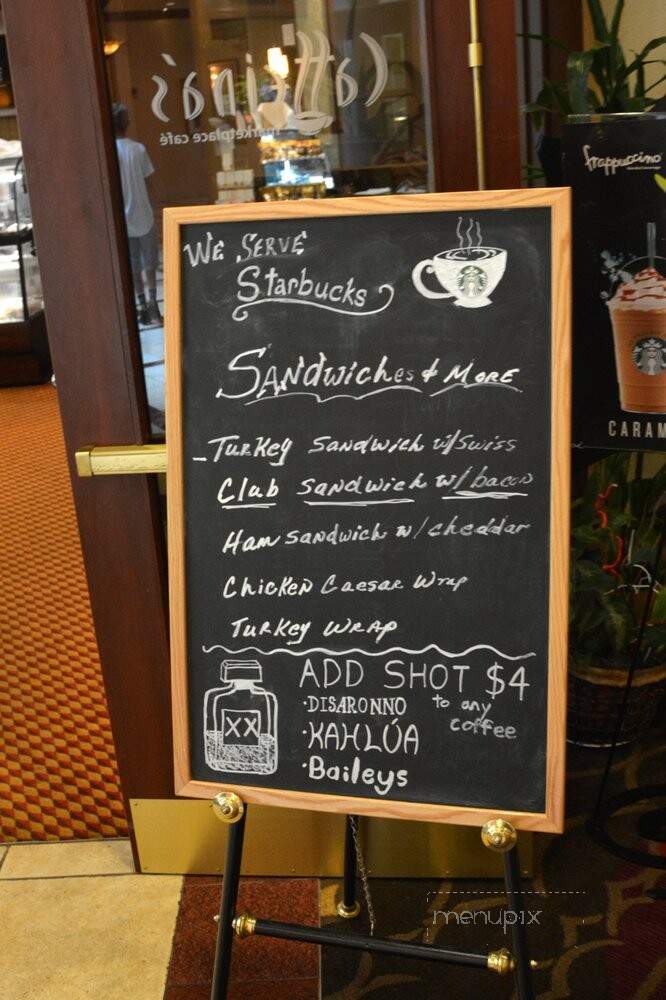 Caffeina's
marketplace café
frappuccino
WE SERVE
Starbucks
SANdwiches & MORE
- TURKey SANdwich w/Swiss
Club sandwich w/bacon
Ham sandwich w/cheddar
Chicken Caesar Wrap
TURKey WRAP
ADD SHOT $4
to any
coffee
·DISARONNO
·KAHLÚA
·Baileys
XX
CARAM
menupix